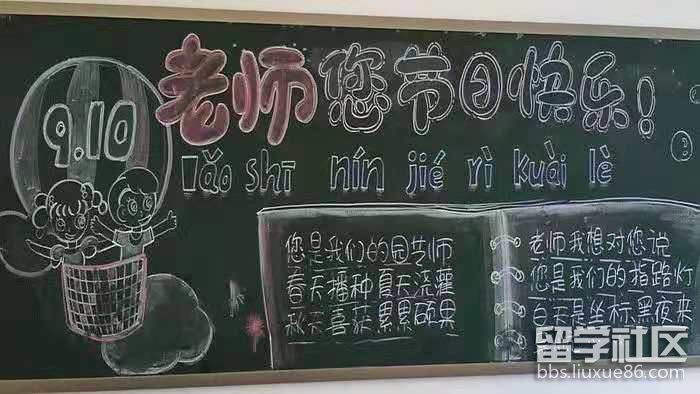 9.10
老师您节日快乐！
lǎo shī nín jié rì kuài lè
您是我们的园艺师
春天播种夏天浇灌
秋天喜获累累硕果
老师我想对您说
您是我们的指路灯
白天是坐标黑夜来
留学社区
bbs.liuxue86.com